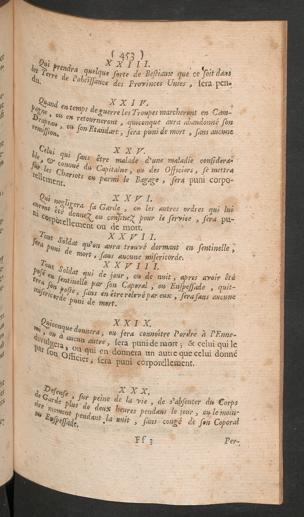 ( 453 )
XXIII.
Qui prendra quelque sorte de Bestiaux que ce soit dans
les Terre de l'obeïssance des Provinces Unies, sera pen-
du.
XXIV.
Quand en temps de guerre les Troupes marcheront en Cam-
pagne, ou en retourneront, quiconque aura abandonné son
Drapeau, ou son Etandart, sera puni de mort, sans aucune
remission.
XXV.
Celui qui sans être malade d'une maladie considera-
ble, & connuë du Capitaine, ou des Officiers, se mettra
sur les Chariots ou parmi le Bagage, sera puni corpo-
rellement.
XXVI.
Qui negligera sa Garde, en les autres ordres qui lui
auront été donnez ou constituez pour le service, sera pu-
ni corporellement ou de mort.
XXVII.
Tout Soldat qu'on aura trouvé dormant en sentinelle,
sera puni de mort, sans aucune misericorde.
XXVIII.
Tout Soldat qui de jour, ou de nuit, apres avoir été
posé en sentinelle par son Caporal, ou Euspessade, quit-
tera son poste, sans en être relevé par eux, sera sans aucune
misericorde puni de mort.
XXIX.
Quiconque donnera, ou fera connoître l'ordre à l'Enne-
mi, ou à aucun autre, sera puni de mort; & celui qui le
divulgera, ou qui en donnera un autre que celui donné
par son Officier, sera puni corporellement.
XXX.
Defense, sur peine de la vie, de s'absenter du Corps
de Garde plus de deux heures pendant le jour, ou le moin-
dre moment pendant la nuit, sans congé de son Caporal
ou Euspessade.
Ff 3
Per-